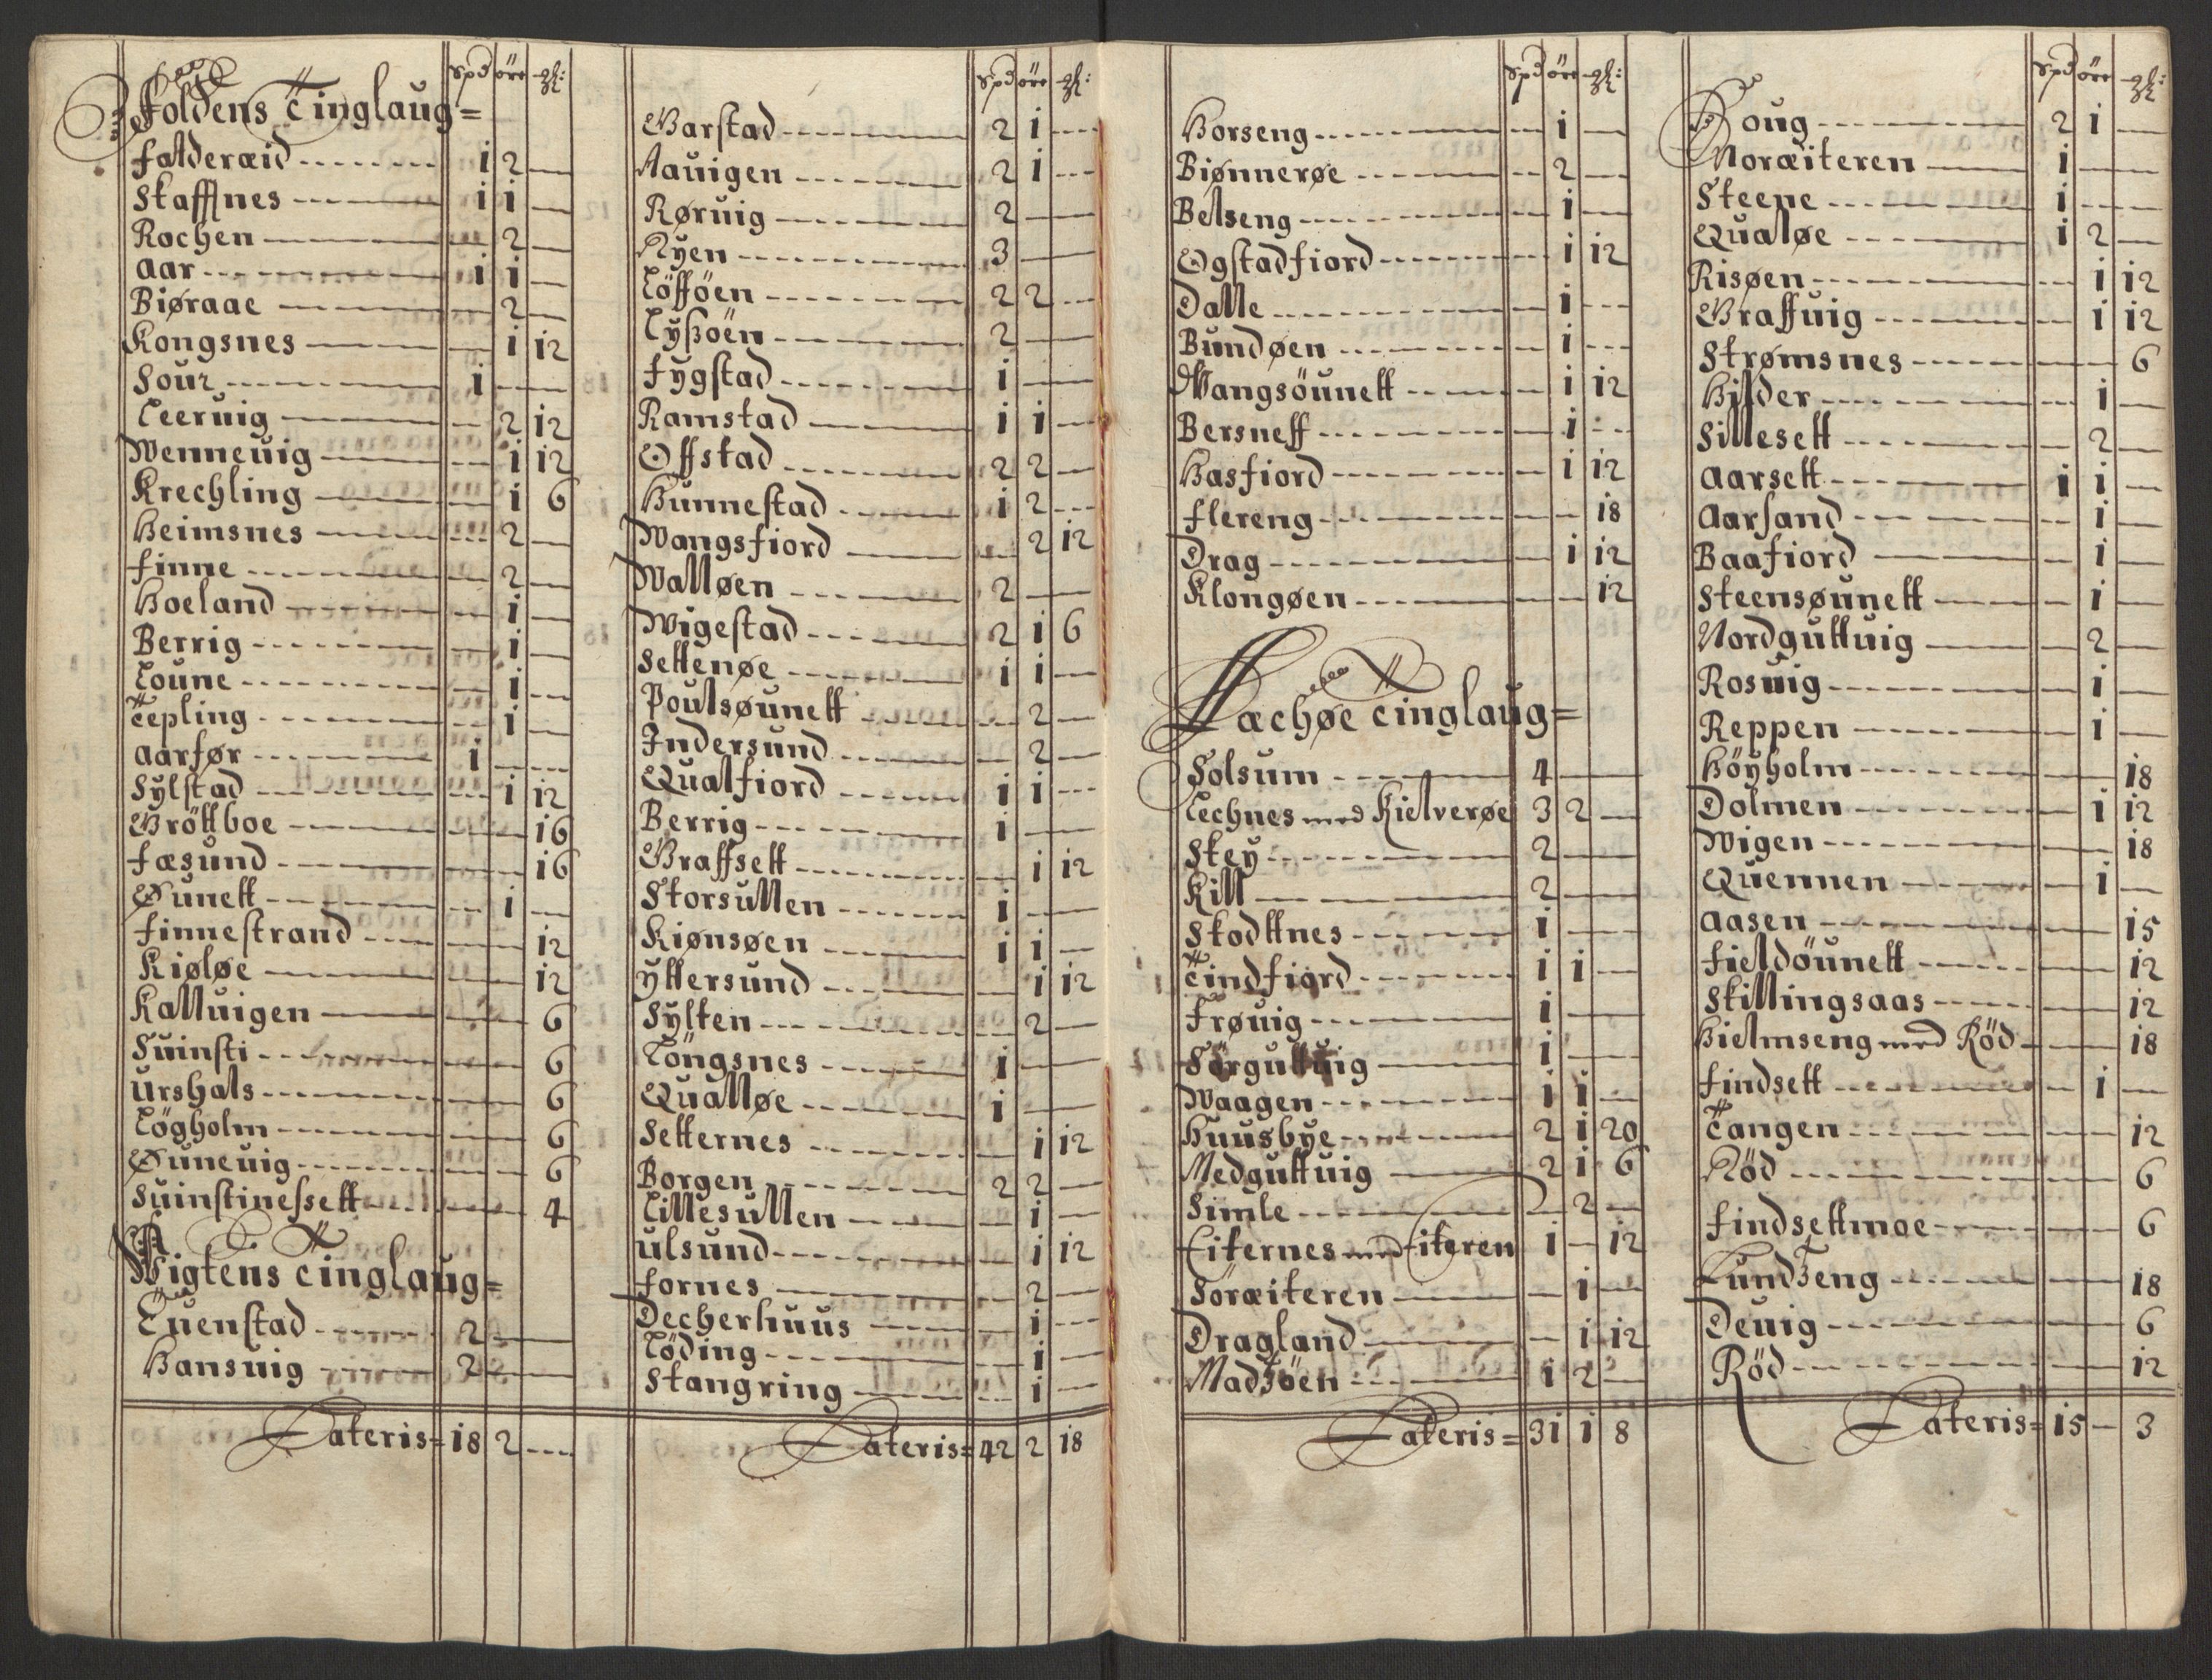 Spd öre
Foldens Tinglaug=
Falderæid 1 2 —
Stafflnes 1 1 —
Rochen — 2 —
Aar 1 1 —
Biøraae — 2 —
Kongsnes — 1 12
Sour 1 — —
Leeruig — 2 12
Wenneuig — 1 12
Krechling — 1 6
Heimsnes — 2 —
Finne — 2 —
Hoeland — 1 —
Berrig — 1 —
Loune — 1 —
Tepling — 1 —
Aarfør 1 — —
Sylstad — 1 12
Gröttboe — — 16
Fæsund — — 16
Øunett — 1 —
Finnestrand — — 12
Kiøløe — — 12
Kalluigen — — 6
Suinsti — — 6
Urshals — — 6
Løgholm — — 6
Øuneuig — — 6
Suinstinessett — — 4
Wigtens Tinglaug=
Euenstad 2 — —
Hansuig 2 — —
Lateris= 18 2 —
Spd öre
Garstad 2 1 —
Aauigen 2 1 —
Røruig 2 — —
Ryen 3 — —
Löfföen 2 2 —
Lyßöen 2 — —
Fygstad 1 — —
Ramstad 1 1 —
Offstad 2 2 —
Hunnestad 1 2 —
Wangsfiord — 2 12
Walløen 2 — —
Wigestad 2 1 6
Settenøe 1 1 —
Poulsøunett — 2 —
Indersund — 2 —
Qualfiord 1 1 —
Berrig 1 — —
Graffsett — 1 12
Storsullen 1 — —
Kiønsøen 1 1 —
Yttersund — 1 12
Sylten — 2 —
Töngsnes 1 — —
Qualløe 1 — —
Setternes — 1 12
Borgen 2 2 —
Lillesullen — 1 —
Ulsund — 1 12
Fornes — 2 —
Decherhuus — 1 —
Löding — 1 —
Stangring — 1 —
Lateris= 42 2 18
Spd öre
Horseng — 1 —
Biønnerøe — 2 —
Belseng — 1 —
Ogstadfiord — 1 12
Dalle — 1 —
Bundøen — 1 —
Wangsöunett — 1 12
Bersneff — 1 —
Hasfiord — 1 12
Flereng — — 18
Drag — 1 12
Klongøen — — 12
Næchøe Tinglaug=
Solsum 4 — —
Lechnes med Kielverøe 3 2 —
Skey 2 — —
Kill 2 — —
Skodttnes 1 — —
Tindfiord 1 1 —
Frøuig 1 — —
Sörguttuig 1 — —
Waagen 1 1 —
Huusbye 2 1 20
Medguttuig 2 1 6
Simle — 2 —
Eiternes med Eiteren 1 — 12
Söræiteren — 1 —
Dragland — 1 12
Madsöen 1 2 —
Lateris= 31 1 8
Spd öre
Houg 2 1 —
Noræiteren 1 — —
Steene 1 — —
Qualøe 1 2 —
Risøen — 1 12
Graffuig — 1 12
Strømsnes — — 6
Hilder — 1 —
Sillesett — 2 —
Aarsett 1 1 —
Aarsand — 1 —
Baafiord — 1 —
Steensøunett — 1 —
Nordguttuig — 2 —
Rosuig — 1 —
Reppen — 1 —
Höyholm — — 18
Dolmen — 1 12
Wigen — — 18
Quennen — 1 —
Aasen — — 15
Fieldöunett — — 12
Skillingsaas — — 12
Hielmseng med Röd — — 18
Findsett — 1 —
Tangen — — 12
Röd — — 6
Findsettmoe — — 6
Lundseng — — 18
Deuig — — 6
Röd — — 12
Lateris= 15 — 3